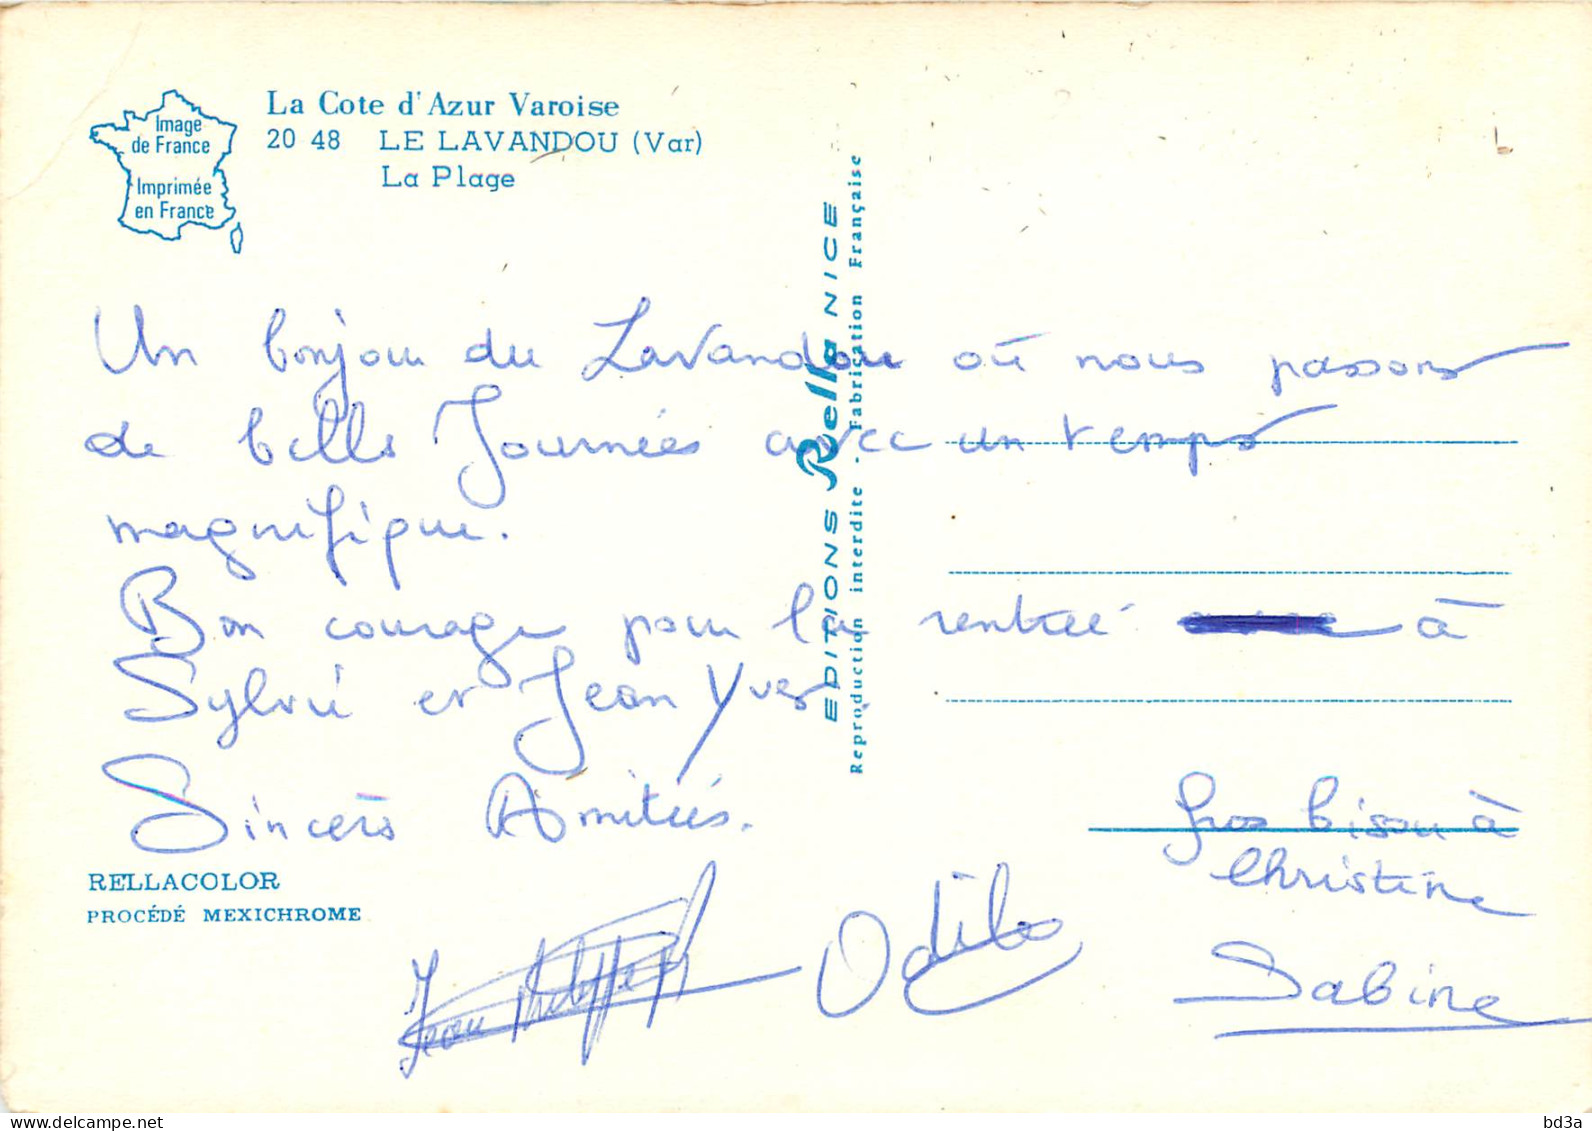 La Cote d'Azur Varoise
20 48 LE LAVANDOU (Var)
La Plage
Image
de France
Imprimée
en France
Un bonjour du Lavandou où nous passons
de belles Journées avec un temps
magnifique.
Bon courage pour la rentrée à
Sylvie et Jean Yves
Sincères Amitiés.
RELLACOLOR
PROCÉDÉ MEXICHROME
EDITIONS Rella NICE
Reproduction interdite - Fabrication Française
Gros bisou à
Christine
Jean Philippe
Odile
Sabine
delcampe.net
bd3a